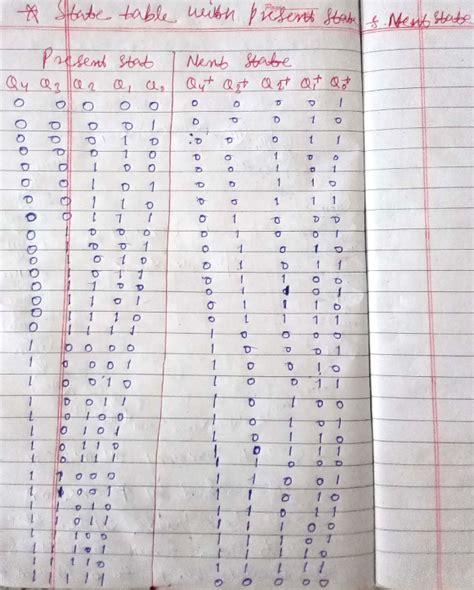 * State table with present state & Next state
Present Stat Next State
Q4 Q3 Q2 Q1 Q0 Q4+ Q3+ Q2+ Q1+ Q0+
0 0 0 0 0 0 0 0 0 1
0 0 0 0 1 0 0 0 1 0
0 0 0 1 0 0 0 0 1 1
0 0 0 1 0 0 0 1 0 0
0 0 1 0 0 0 0 1 0 1
0 0 1 0 1 0 0 1 1 0
0 0 1 1 0 0 0 1 1 1
0 0 1 1 1 0 1 0 0 0
0 1 0 0 0 0 1 0 0 1
0 1 0 0 1 0 1 0 1 0
0 1 0 1 0 0 1 0 1 1
0 1 0 1 1 0 1 1 0 0
0 1 1 0 0 0 1 1 0 1
0 1 1 0 1 0 1 1 1 0
0 1 1 1 0 0 1 1 1 1
0 1 1 1 1 1 0 0 0 0
1 0 0 0 0 1 0 0 0 1
1 0 0 0 1 1 0 0 1 0
1 0 0 1 0 1 0 0 1 1
1 0 0 1 1 1 0 1 0 0
1 0 1 0 0 1 0 1 0 1
1 0 1 0 1 1 0 1 1 0
1 0 1 1 0 1 0 1 1 1
1 0 1 1 1 1 1 0 0 0
1 1 0 0 0 1 1 0 0 1
1 1 0 0 1 1 1 0 1 0
1 1 0 1 0 1 1 0 1 1
1 1 0 1 1 1 1 1 0 0
1 1 1 0 0 1 1 1 0 1
1 1 1 0 1 1 1 1 1 0
1 1 1 1 0 1 1 1 1 1
1 1 1 1 1 0 0 0 0 0